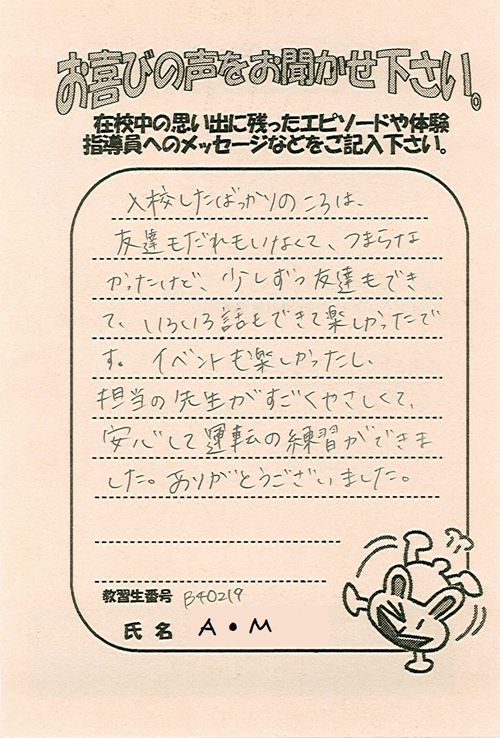 お喜びの声をお聞かせ下さい。
在校中の思い出に残ったエピソードや体験
指導員へのメッセージなどをご記入下さい。
入校したばっかりのころは、
友達もだれもいなくて、つまらな
かったけど、少しずつ友達もでき
て、いろいろ話もできて楽しかったで
す。イベントも楽しかったし、
担当の先生がすごくやさしくて、
安心して運転の練習ができま
した。ありがとうございました。
教習生番号 B40219
氏名 A・M